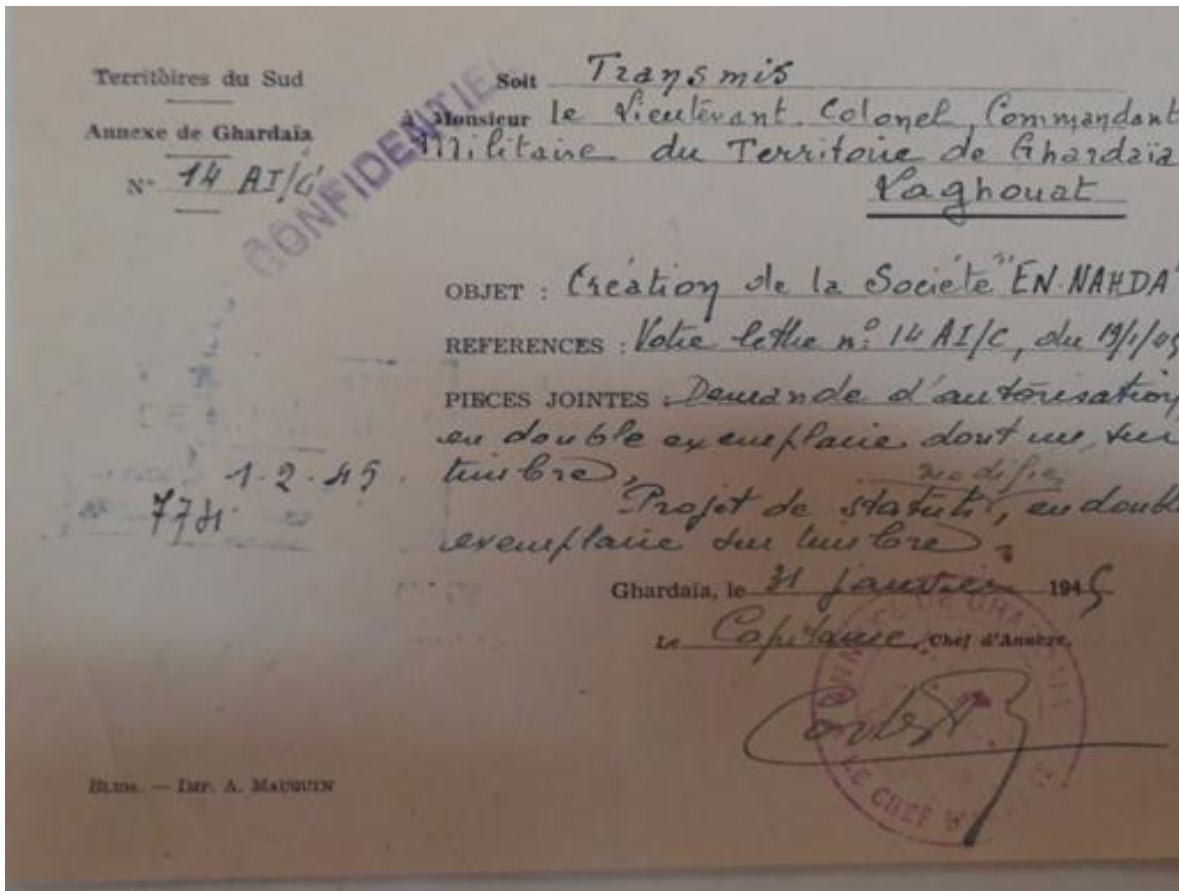 Territoires du Sud
Annexe de Ghardaïa
N° 14 AI/C
CONFIDENTIEL
Soit Transmis
à Monsieur le Lieutenant Colonel, Commandant
Militaire du Territoire de Ghardaïa
Laghouat
OBJET : Création de la Société "EN-NAHDA"
REFERENCES : Votre lettre n° 14 AI/C, du 19/1/45
PIECES JOINTES : Demande d'autorisation
en double exemplaire dont un, sur
timbre,
modifié
Projet de statuts, en double
exemplaire sur timbre.
1.2.45.
Ghardaïa, le 31 janvier 1945
Le Capitaine, Chef d'Annexe,
LE CHEF
BLIDA. — IMP. A. MAUGUIN